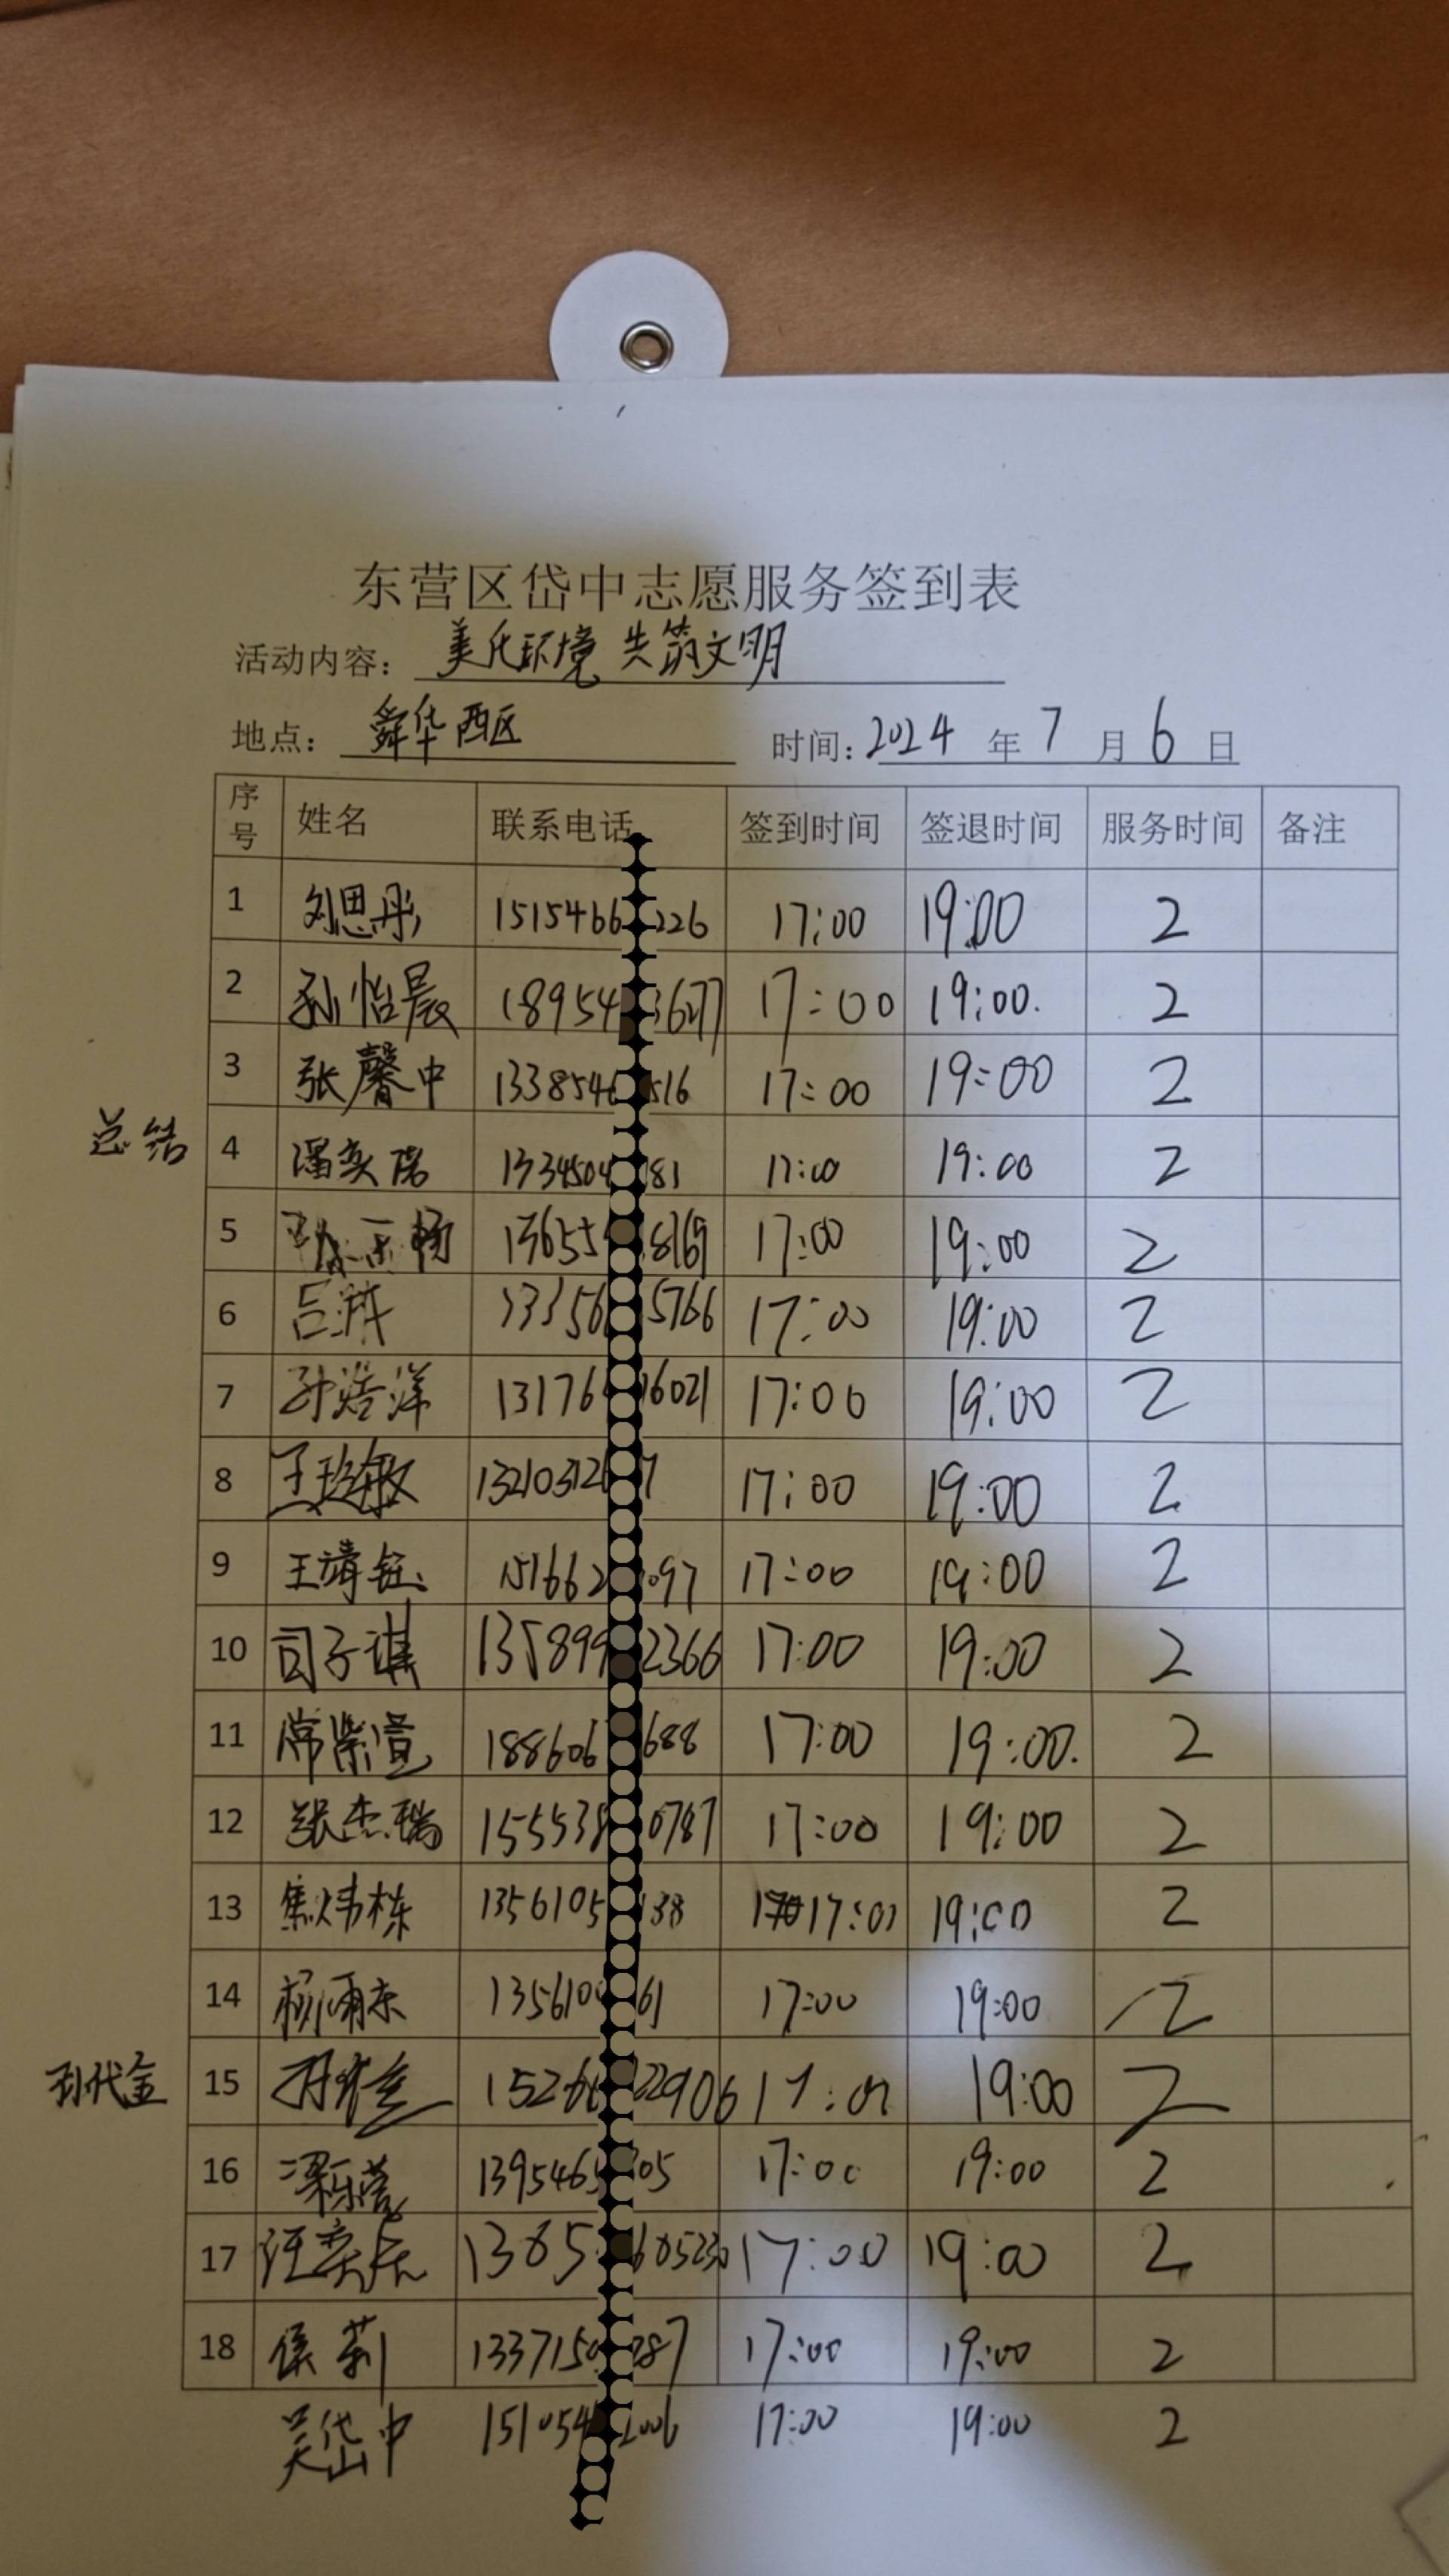 东营区岱中志愿服务签到表
活动内容： 美化环境 共筑文明
地点： 舜华西区 时间：2024 年 7 月 6 日
序号 姓名 联系电话 签到时间 签退时间 服务时间 备注
1 刘思彤 1515466 226 17:00 19:00 2
2 孙怡晨 18954 3677 17:00 19:00. 2
3 张馨中 133854 516 17:00 19:00 2
总结 4 潘奕诺 1334504 181 17:00 19:00 2
5 13655 8169 17:00 19:00 2
6 吕 33356 5766 17:00 19:00 2
7 孙浩洋 13176 16021 17:00 19:00 2
8 王 敏 13210312 7 17:00 19:00 2
9 王靖钰 151662 097 17:00 19:00 2
10 司子祺 135899 2366 17:00 19:00 2
11 常紫萱 188606 688 17:00 19:00. 2
12 张杰瑞 155538 0787 17:00 19:00 2
13 焦炜栋 1356105 138 17:00 19:00 2
14 杨雨东 135610 61 17:00 19:00 2
代金 15 1526 22906 17:00 19:00 2
16 梁乐莹 139546 05 17:00 19:00 2
17 汪奕辰 1385 685230 17:00 19:00 2
18 侯莉 1337150 287 17:00 19:00 2
吴岱中 151054 2006 17:00 19:00 2